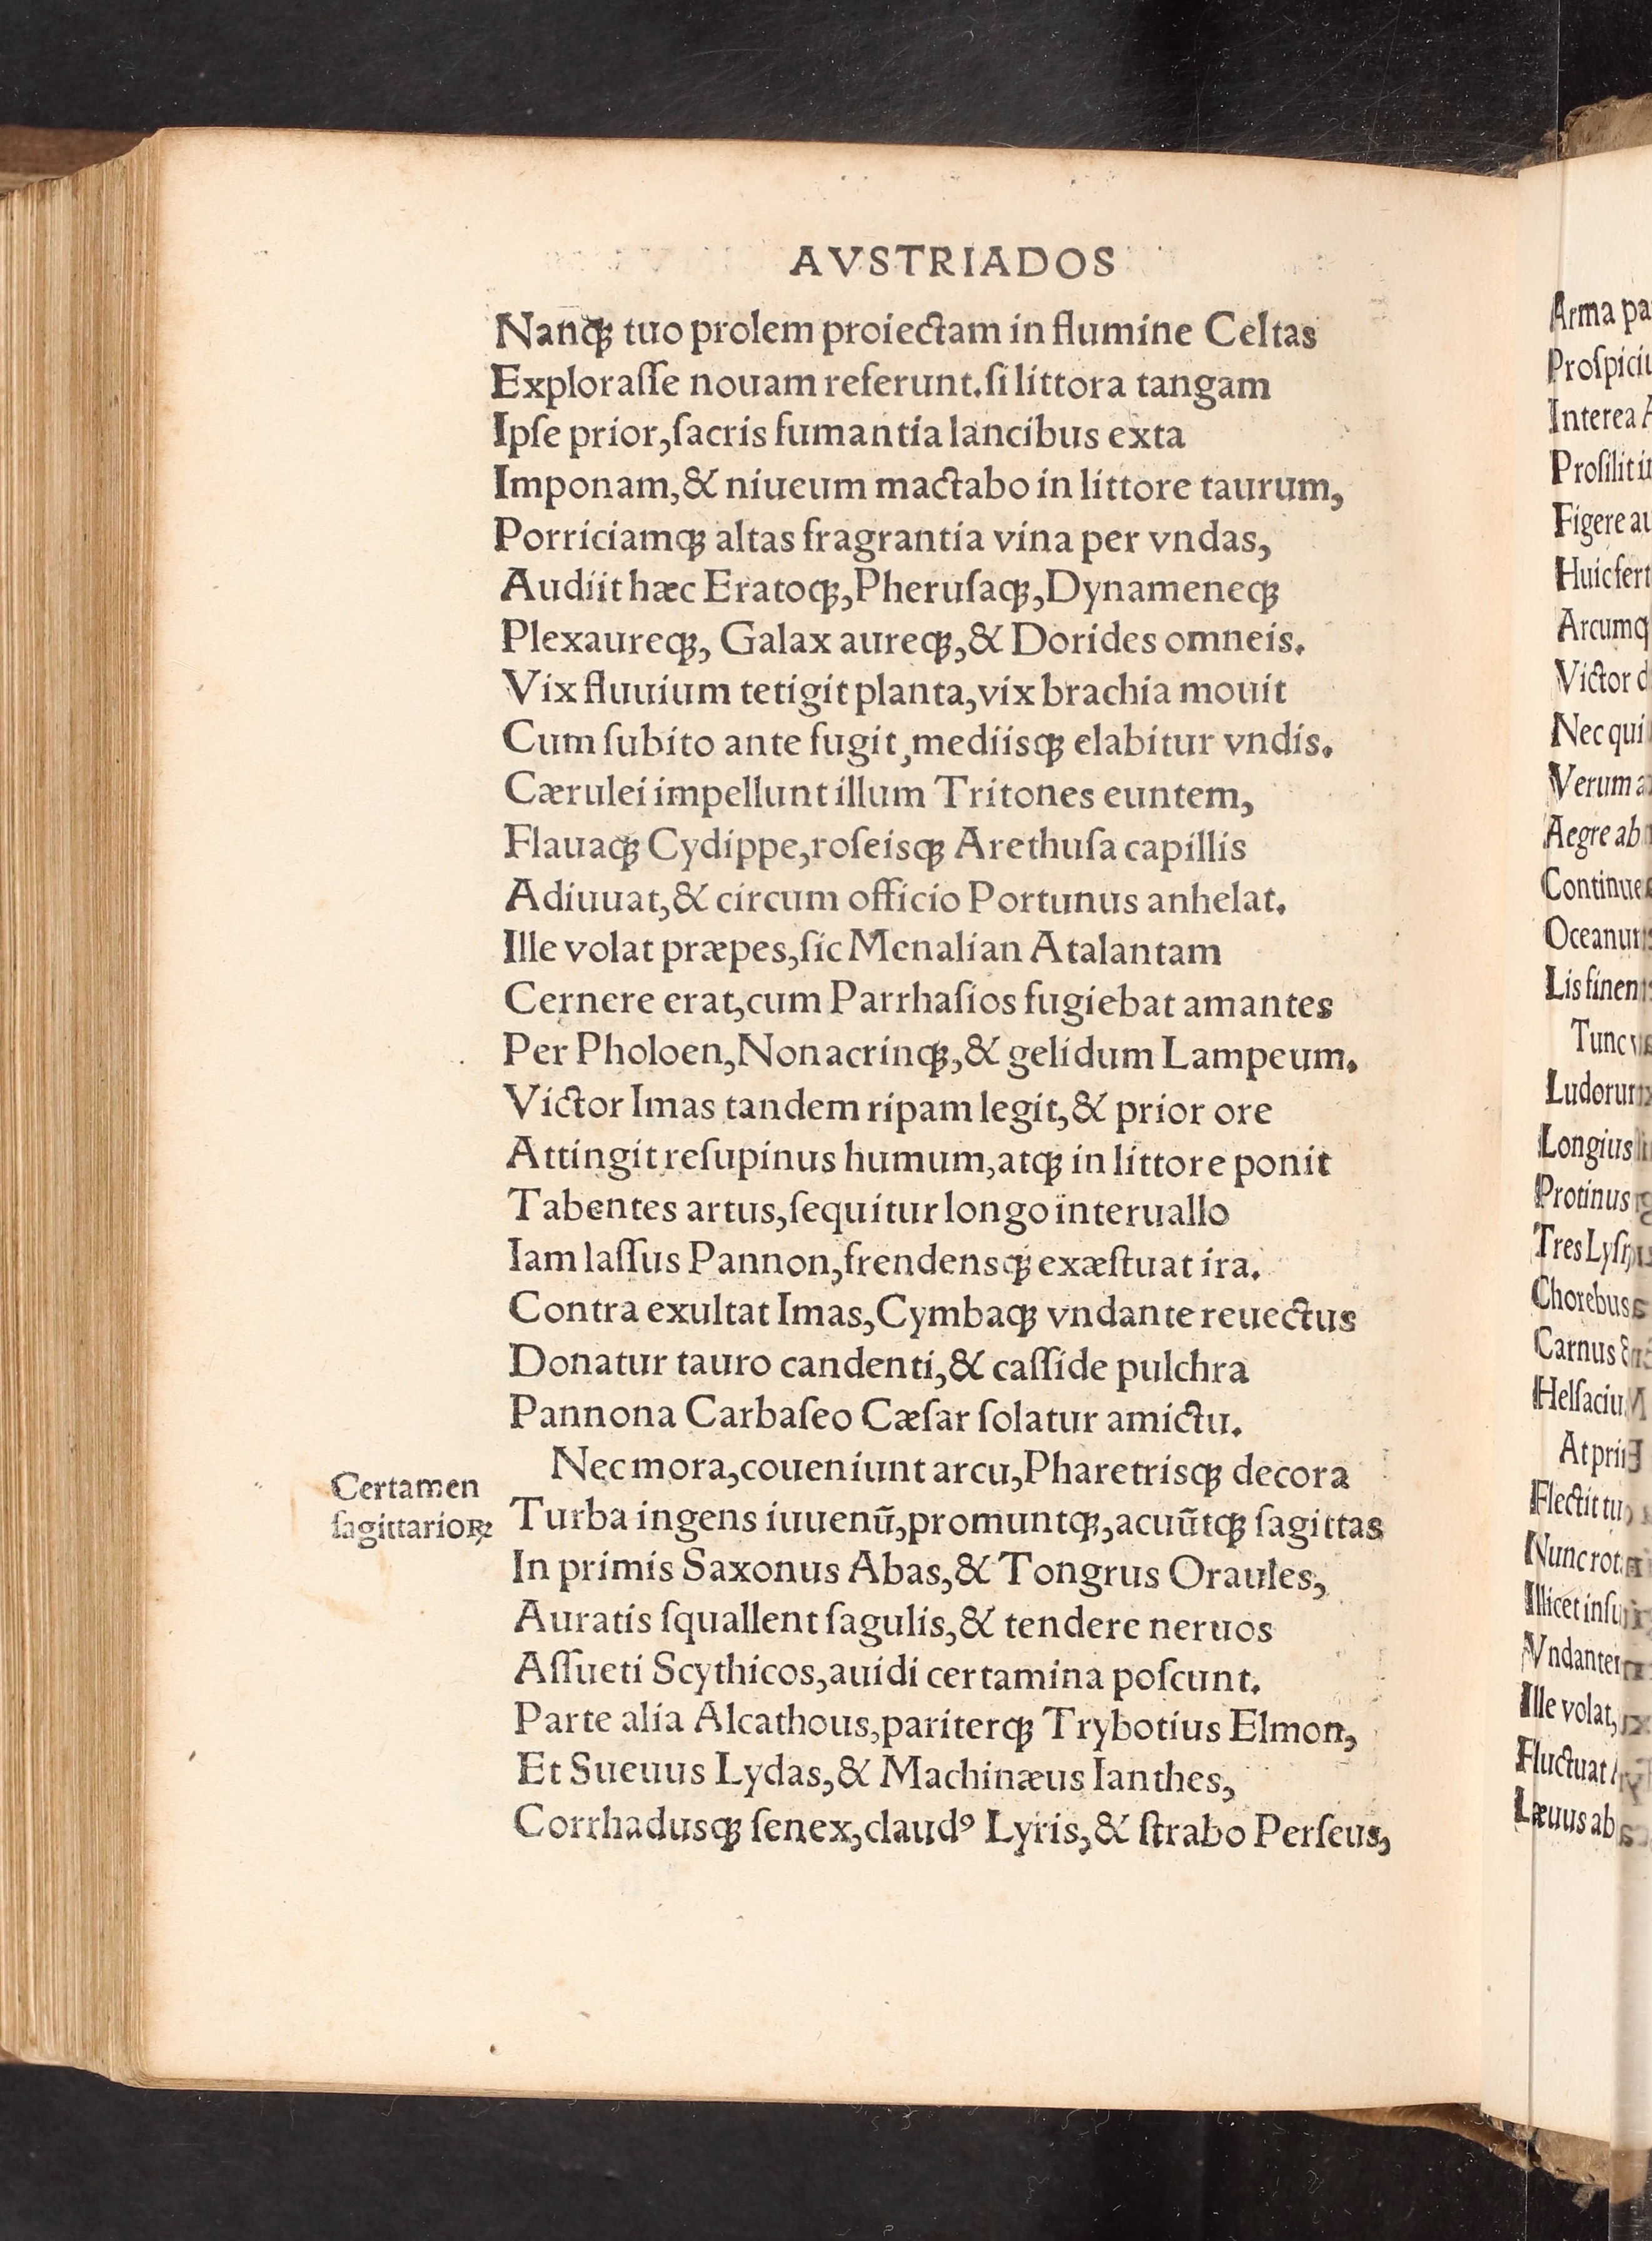 AVSTRIADOS
Nanqꝫ tuo prolem proiectam in flumine Celtas
Exploraſſe nouam referunt. ſi littora tangam
Ipſe prior, ſacris fumantia lancibus exta
Imponam, & niueum mactabo in littore taurum,
Porriciamqꝫ altas fragrantia vina per vndas,
Audiit hæc Eratoqꝫ, Pheruſaqꝫ, Dynameneqꝫ
Plexaureqꝫ, Galax aureqꝫ, & Dorides omneis.
Vix fluuium tetigit planta, vix brachia mouit
Cum ſubito ante fugit, mediisqꝫ elabitur vndis.
Cærulei impellunt illum Tritones euntem,
Flauaqꝫ Cydippe, roſeisqꝫ Arethuſa capillis
Adiuuat, & circum officio Portunus anhelat.
Ille volat præpes, ſic Menalian Atalantam
Cernere erat, cum Parrhaſios fugiebat amantes
Per Pholoen, Nonacrinqꝫ, & gelidum Lampeum.
Victor Imas tandem ripam legit, & prior ore
Attingit reſupinus humum, atqꝫ in littore ponit
Tabentes artus, ſequitur longo interuallo
Iam laſſus Pannon, frendensqꝫ exæſtuat ira.
Contra exultat Imas, Cymbaqꝫ vndante reuectus
Donatur tauro candenti, & caſſide pulchra
Pannona Carbaſeo Cæſar ſolatur amictu.
Nec mora, coueniunt arcu, Pharetrisqꝫ decora
Certamen
ſagittarioꝝ
Turba ingens iuuenū, promuntqꝫ, acuūtqꝫ ſagittas
In primis Saxonus Abas, & Tongrus Oraules,
Auratis ſquallent ſagulis, & tendere neruos
Aſſueti Scythicos, auidi certamina poſcunt.
Parte alia Alcathous, pariterqꝫ Trybotius Elmon,
Et Sueuus Lydas, & Machinæus Ianthes,
Corrhadusqꝫ ſenex, claudꝰ Lyris, & ſtrabo Perſeus,
Arma
Proſpiciu
Interea
Proſilit
Figere
Huic fert
Arcumq
Victor
Nec qui
Verum
Aegre ab
Continue
Oceanum
Lis finem
Tunc
Ludorum
Longius
Protinus
Tres
Chorebus
Carnus
Helſaciu
At
Flectit
Nunc
Illicet
Vndante
Ille volat,
Fluctuat
Læuus ab